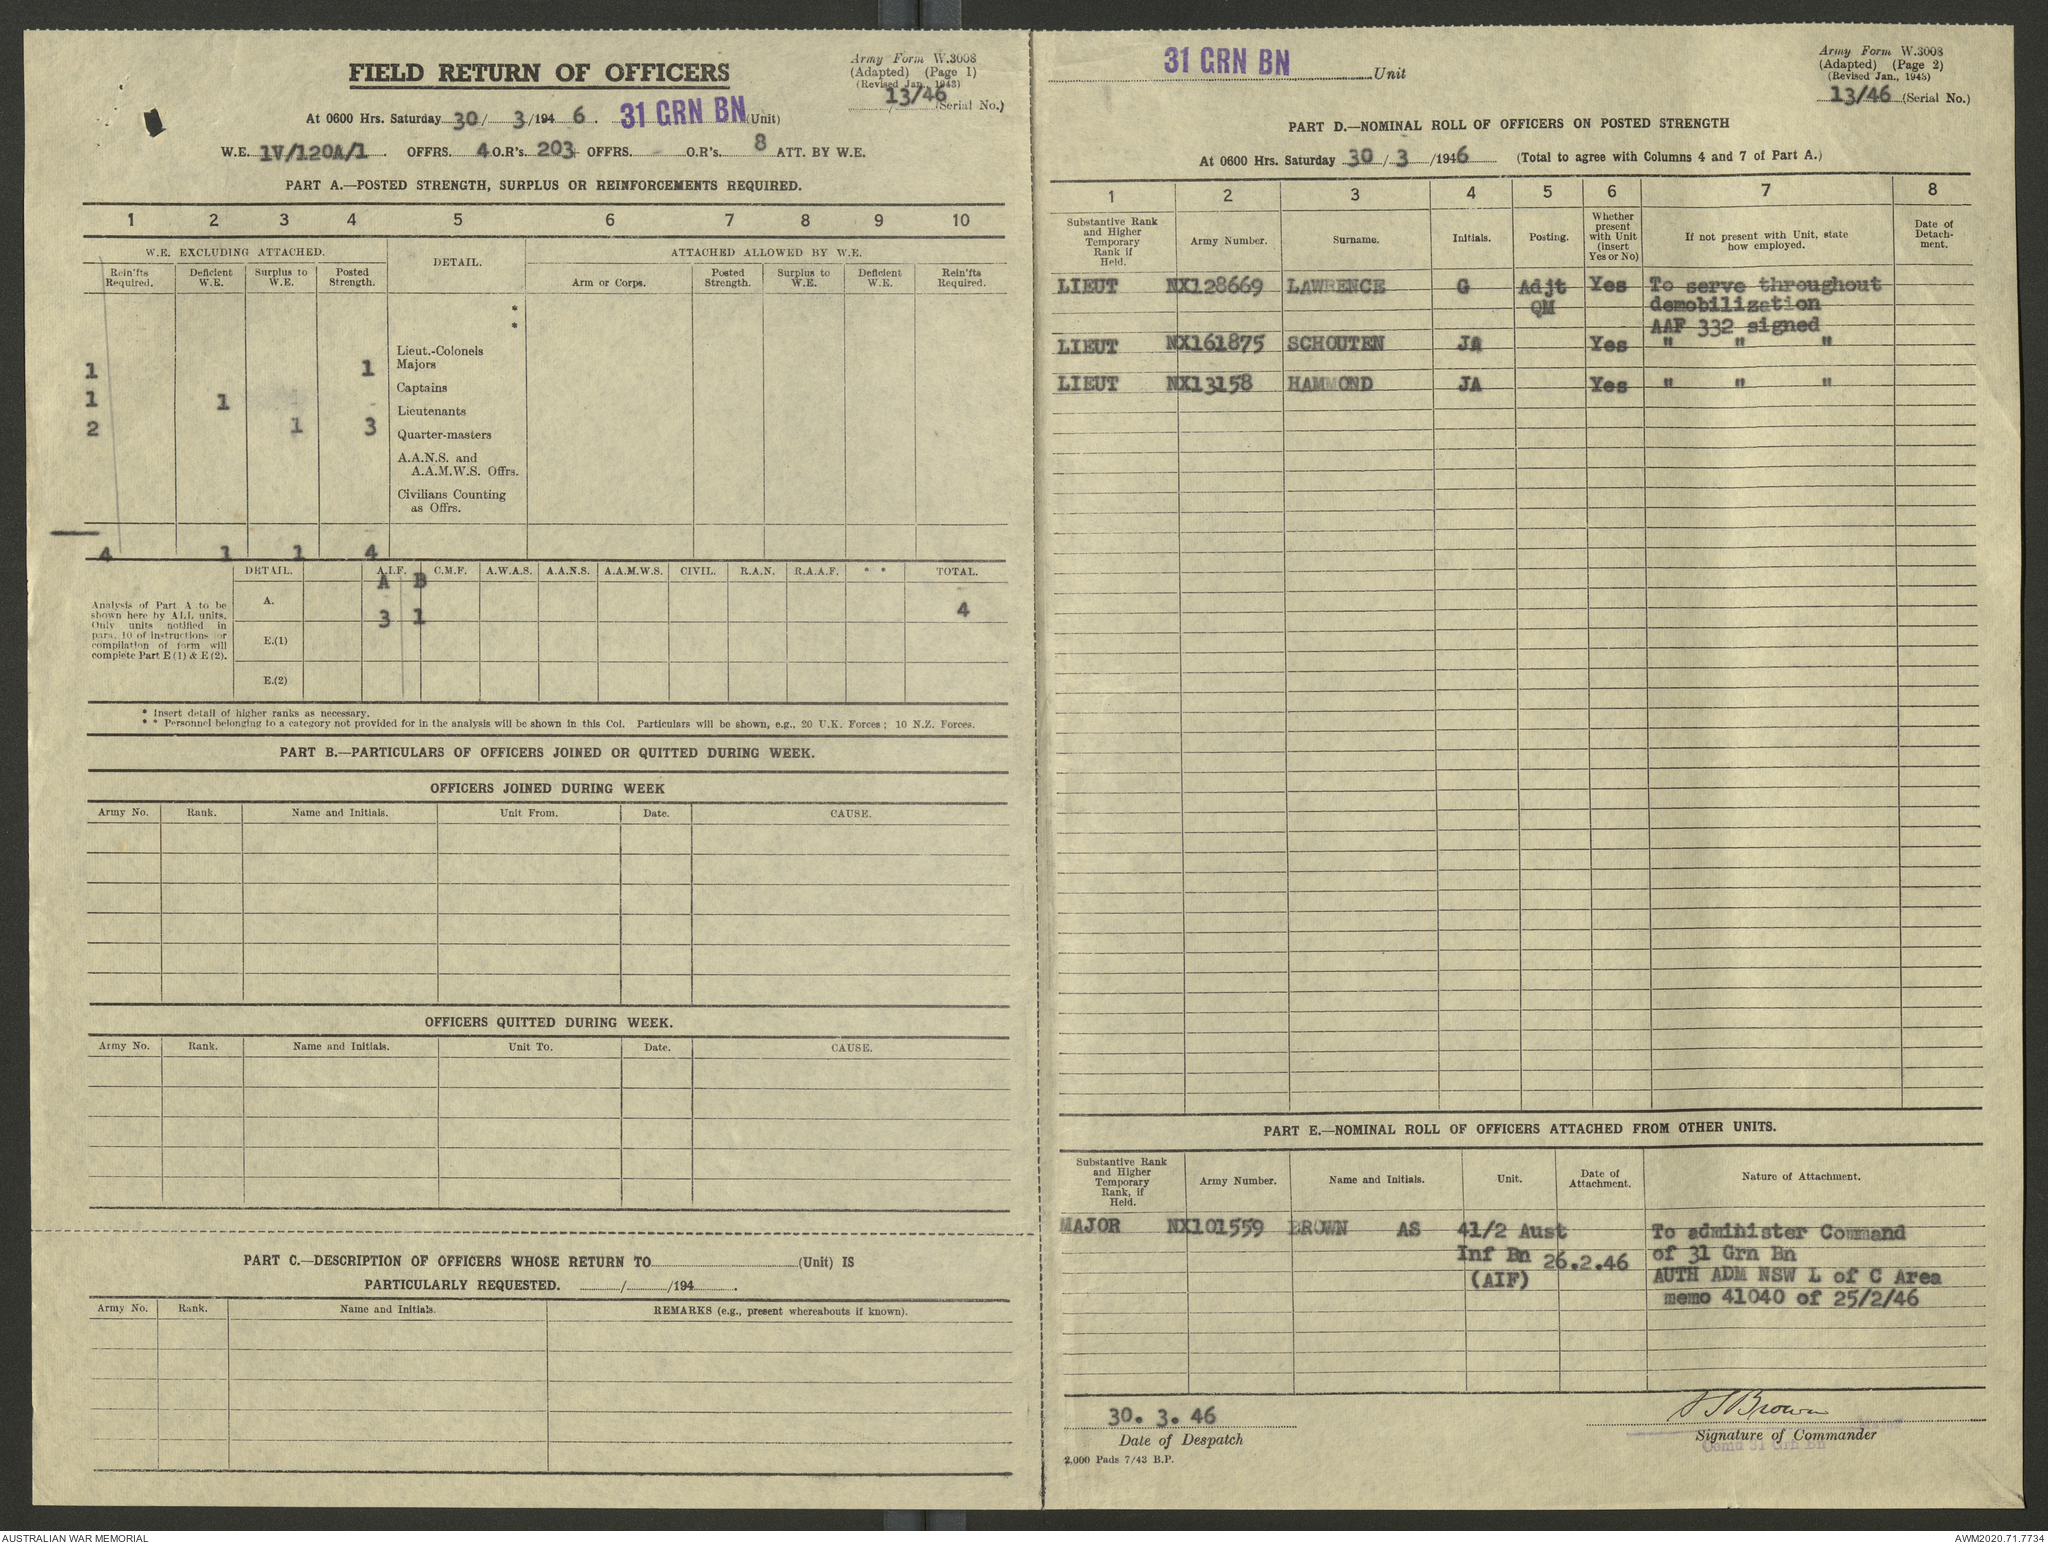 FIELD RETURN OF OFFICERS
Army Form W.3008
(Adapted) (Page 1)
(Revised Jan., 1943)
13/46 (Serial No.)
At 0600 Hrs. Saturday 30/ 3/194 6. 31 GRN BN (Unit)
W.E. 1V/120A/1. OFFRS. 4 O.R's. 203 OFFRS. - O.R's. 8 ATT. BY W.E.
PART A.—POSTED STRENGTH, SURPLUS OR REINFORCEMENTS REQUIRED.
1 2 3 4 5 6 7 8 9 10
W.E. EXCLUDING ATTACHED. DETAIL. ATTACHED ALLOWED BY W.E.
Rein'fts Required. Deficient W.E. Surplus to W.E. Posted Strength. Arm or Corps. Posted Strength. Surplus to W.E. Deficient W.E. Rein'fts Required.
*
*
Lieut.-Colonels
1 1 Majors
Captains
1 1
Lieutenants
2 1 3 Quarter-masters
A.A.N.S. and
A.A.M.W.S. Offrs.
Civilians Counting
as Offrs.
4 1 1 4
DETAIL. A.I.F. C.M.F. A.W.A.S. A.A.N.S. A.A.M.W.S. CIVIL. R.A.N. R.A.A.F. * * TOTAL.
A B
A. 3 1 4
E.(1)
E.(2)
Analysis of Part A to be
shown here by ALL units.
Only units notified in
para. 10 of instructions for
compilation of form will
complete Part E (1) & E (2).
* Insert detail of higher ranks as necessary.
* * Personnel belonging to a category not provided for in the analysis will be shown in this Col. Particulars will be shown, e.g., 20 U.K. Forces; 10 N.Z. Forces.
PART B.—PARTICULARS OF OFFICERS JOINED OR QUITTED DURING WEEK.
OFFICERS JOINED DURING WEEK
Army No. Rank. Name and Initials. Unit From. Date. CAUSE.
OFFICERS QUITTED DURING WEEK.
Army No. Rank. Name and Initials. Unit To. Date. CAUSE.
PART C.—DESCRIPTION OF OFFICERS WHOSE RETURN TO (Unit) IS
PARTICULARLY REQUESTED. / /194 .
Army No. Rank. Name and Initials. REMARKS (e.g., present whereabouts if known).
31 GRN BN Unit
Army Form W.3008
(Adapted) (Page 2)
(Revised Jan., 1943)
13/46 (Serial No.)
PART D.—NOMINAL ROLL OF OFFICERS ON POSTED STRENGTH
At 0600 Hrs. Saturday 30 / 3 /1946 (Total to agree with Columns 4 and 7 of Part A.)
1 2 3 4 5 6 7 8
Substantive Rank and Higher Temporary Rank if Held. Army Number. Surname. Initials. Posting. Whether present with Unit (insert Yes or No) If not present with Unit, state how employed. Date of Detach-ment.
LIEUT NX128669 LAWRENCE G Adjt Yes To serve throughout
QM demobilization
AAF 332 signed
LIEUT NX161875 SCHOUTEN JA Yes " " "
LIEUT NX13158 HAMMOND JA Yes " " "
PART E.—NOMINAL ROLL OF OFFICERS ATTACHED FROM OTHER UNITS.
Substantive Rank and Higher Temporary Rank, if Held. Army Number. Name and Initials. Unit. Date of Attachment. Nature of Attachment.
MAJOR NX101559 BROWN AS 41/2 Aust To administer Command
Inf Bn 26.2.46 of 31 Grn Bn
(AIF) AUTH ADM NSW L of C Area
memo 41040 of 25/2/46
30. 3. 46
Date of Despatch
A S Brown
Major
Signature of Commander
Comd 31 Grn Bn
2,000 Pads 7/43 B.P.
AUSTRALIAN WAR MEMORIAL
AWM2020.71.7734